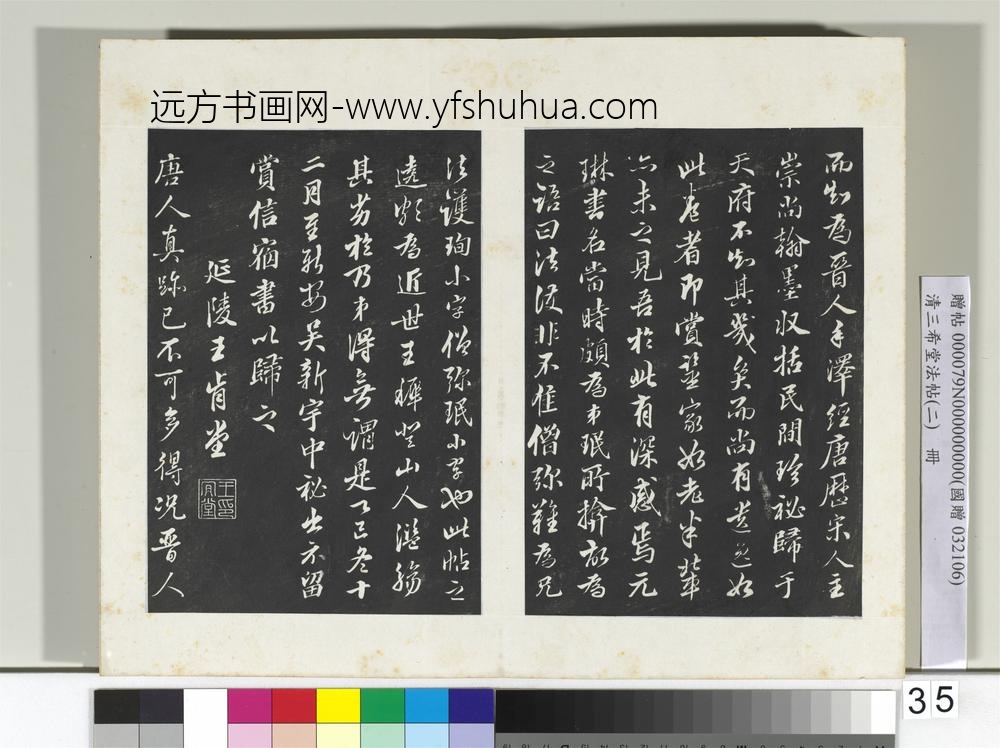 远方书画网-www.yfshuhua.com
而知為晉人手澤經唐歷宋人主
崇尚翰墨收括民間珍祕歸于
天府不知其幾矣而尚有遺逸如
此卷者即賞鑒家如老米輩
亦未之見吾於此有深感焉元
琳書名當時頗為弟珉所揜故為
之語曰法護非不佳僧彌難為兄
法護珣小字僧彌珉小字也此帖之
頗為近世王穉登山人濫觴
其劣於乃弟得無謂是丁巳冬十
二月至新安吳新宇中祕出示留
賞信宿書以歸之
延陵王肯堂
唐人真跡已不可多得況晉人
贈帖 000079N000000000(國贈 032106)
清三希堂法帖(二) 冊
35